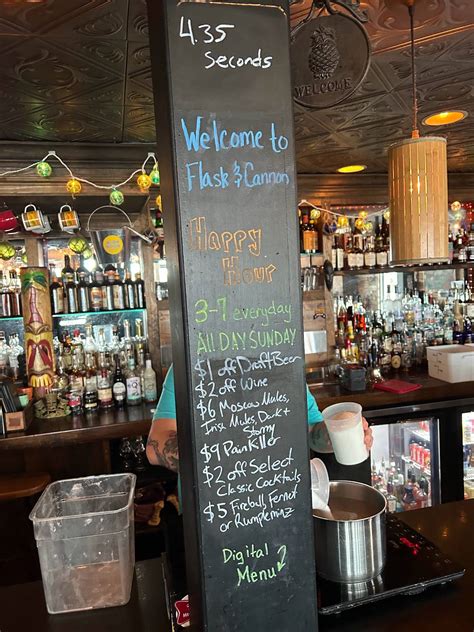 4.35
Seconds
WELCOME
Welcome to
Flask & Cannon
Happy
Hour
3-7 everyday
ALL DAY SUNDAY
$1 off Draft Beer
$2 off Wine
$6 Moscow Mules,
Irish Mules, Dark +
Stormy
$9 PainKiller
$2 off Select
Classic Cocktails
$5 Fireball, Fernet
or Rumpleminz
Digital
Menu